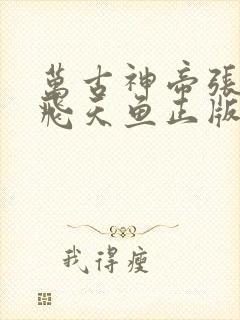 萬古神帝張
飛天魚正版
我得瘦